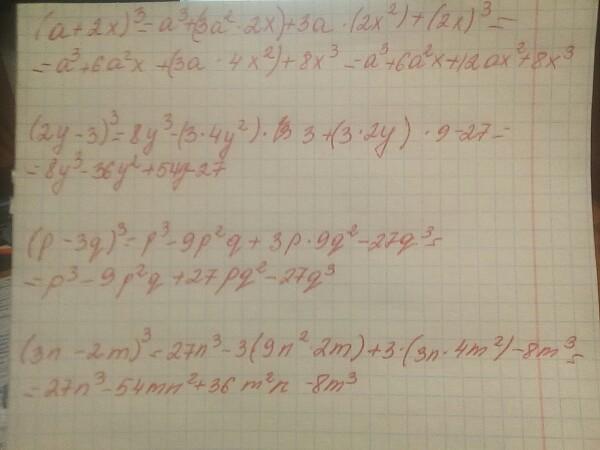 (a+2x)³=a³+(3a²·2x)+3a·(2x²)+(2x)³=
=a³+6a²x+(3a·4x²)+8x³=a³+6a²x+12ax²+8x³
(2y-3)³=8y³-(3·4y²)·3+(3·2y)·9-27=
=8y³-36y²+54y-27
(p-3q)³=p³-9p²q+3p·9q²-27q³=
=p³-9p²q+27pq²-27q³
(3n-2m)³=27n³-3(9n²·2m)+3·(3n·4m²)-8m³=
=27n³-54mn²+36m²n-8m³